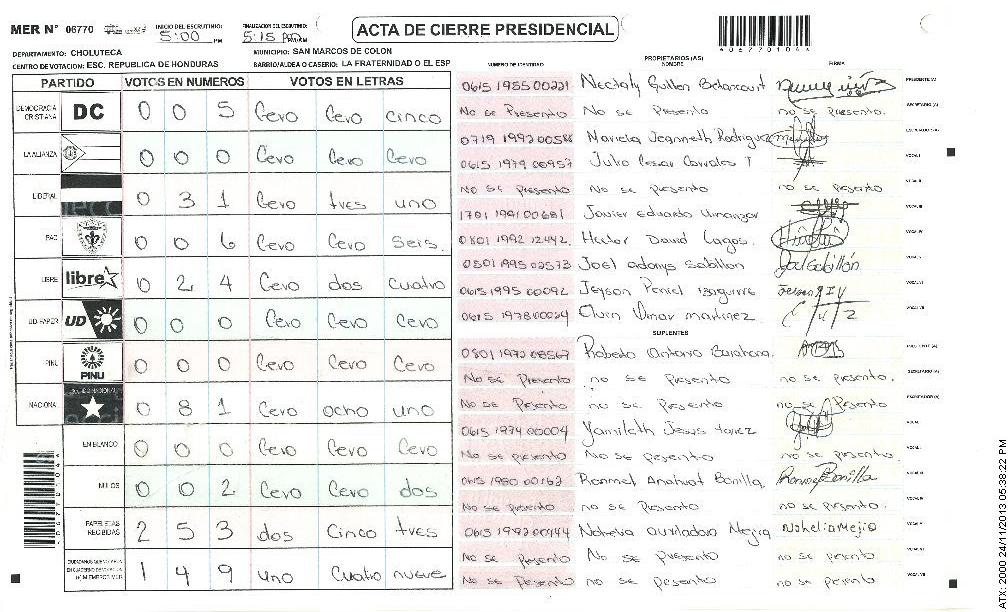 MER N° 06770 INICIO DEL ESCRUTINIO: 5:00 PM FINALIZACION DEL ESCRUTINIO: 5:15 PM
ACTA DE CIERRE PRESIDENCIAL
DEPARTAMENTO: CHOLUTECA MUNICIPIO: SAN MARCOS DE COLON
CENTRO DE VOTACION: ESC. REPUBLICA DE HONDURAS BARRIO/ALDEA O CASERIO: LA FRATERNIDAD O EL ESP
PARTIDO VOTOS EN NUMEROS VOTOS EN LETRAS
DEMOCRACIA CRISTIANA DC 0 0 5 Cero Cero cinco
LA ALIANZA 0 0 0 Cero Cero Cero
LIBERAL 0 3 1 Cero tres uno
PAC 0 0 6 Cero Cero Seis.
LIBRE libre 0 2 4 Cero dos cuatro
UD-FAPER UD 0 0 0 Cero Cero Cero
PINU PINU 0 0 0 Cero Cero Cero
NACIONAL 0 8 1 Cero ocho uno
EN BLANCO 0 0 0 Cero Cero Cero
NULOS 0 0 2 Cero Cero dos
PAPELETAS RECIBIDAS 2 5 3 dos Cinco tres
1 4 9 uno Cuatro nueve
NUMERO DE IDENTIDAD PROPIETARIOS (AS) NOMBRE FIRMA
0615 1985 00221 Nectaly Guillen Betancourt PRESIDENTE (A)
No se Presento No se Presento no se presento. SECRETARIO (A)
0719 1992 00588 Mariela Jeanneth Rodriguez
0615 1979 00957 Julio Cesar Corrales T VOCAL I
No se Presento No se Presento no se Presento VOCAL II
1701 1991 00681 Javier Eduardo Umanzor VOCAL III
0801 1992 12442. Hector David Lagos. VOCAL IV
0801 1995 02573 Joel adonys Sabillon Joel Sabillón VOCAL V
0615 1995 00092 Jeyson Peniel VOCAL VI
0615 1978 00024 Omar martinez VOCAL VII
SUPLENTES
0801 1972 08567 Roberto Antonio Barahona. PRESIDENTE (A)
No se Presento no se Presento no se Presento. SECRETARIO (A)
No se Presento no se Presento no se Presento
0615 1974 00004 Yamileth Jesus VOCAL I
No se presento No se Presento no se Presento. VOCAL II
0615 1980 00162 Ronmel Bonilla Bonilla VOCAL III
No se Presento no se Presento no se Presento. VOCAL IV
0615 1992 00144 Nohelia auxiliadora Mejia Nohelia Mejia VOCAL V
No se Presento No se Presento no se Presento. VOCAL VI
No se Presento no se Presento no se Presento. VOCAL VII
ATX: 2000 24/11/2013 05:38:22 PM